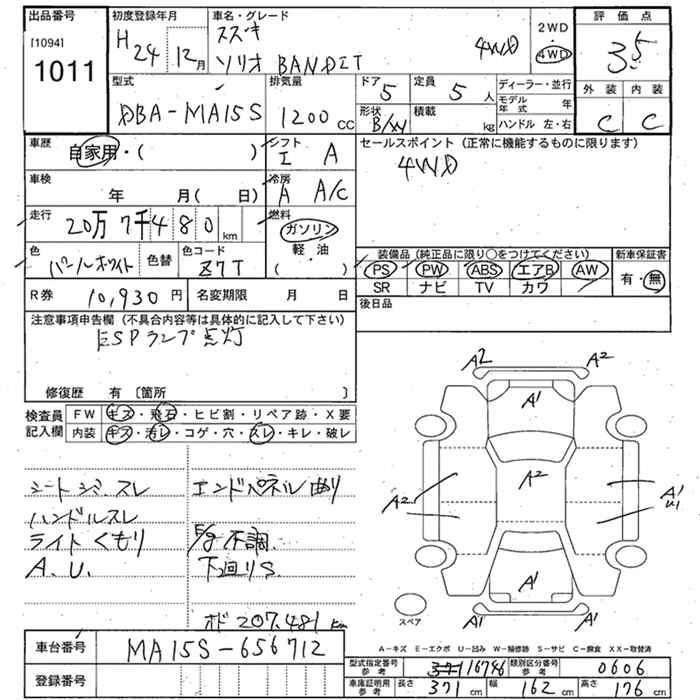 出品番号 初度登録年月 車名・グレード 評価点
[1094] 1011
H 24 12月 スズキ ソリオ BANDIT 4WD 2WD ・ 4WD 3.5
型式 排気量 ドア 定員 ディーラー・並行 外装 内装
DBA-MA15S 1200 CC 5 5 人 モデル年式 年 C C
形状 積載 kg ハンドル 左・右
車歴 自家用・( ) シフト I A セールスポイント (正常に機能するものに限ります)
4WD
車検 年 月( 日) 冷房 A A/C
走行 20万7千480 km 燃料 ガソリン 軽・油 ( )
色 パールホワイト 色替 色コード Z7T
装備品 (純正品に限り○をつけてください) 新車保証書
PS PW ABS エアB AW 有・無
SR ナビ TV カワ
R券 10,930 円 名変期限 月 日 後日品
注意事項申告欄 (不具合内容等は具体的に記入して下さい)
ESPランプ点灯
修復歴 有 〔箇所 〕
検査員記入欄 FW キズ・飛石・ヒビ割・リペア跡・X要
内装 キズ・汚レ・コゲ・穴・スレ・キレ・破レ
シートシミ.スレ エンドパネル曲り
ハンドルスレ
ライトくもり E/g不調.
A.U. 下回りS.
オド 207,481 km
A2 A2
A1
A2 A2 A1 U1
A1
A1 A1
スペア
A-キズ E-エクボ U-凹み W-補修跡 S-サビ C-腐食 XX-取替済
車台番号 MA15S-656712
登録番号
型式指定番号 参考 16746 類別区分番号 参考 0606
車庫証明用 参考 長さ 371 cm 幅 162 cm 高さ 176 cm